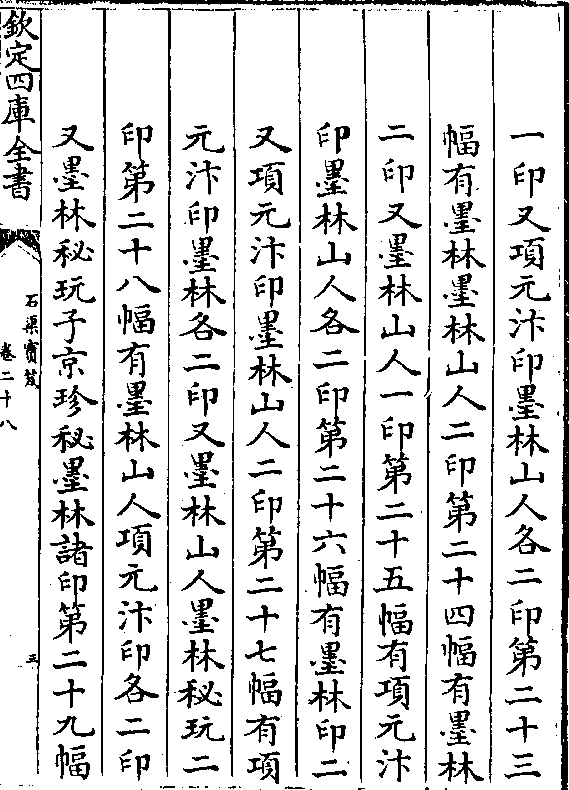 一印又項元汴印墨林山人各二印第二十三
幅有墨林墨林山人二印第二十四幅有墨林
二印又墨林山人一印第二十五幅有項元汴
印墨林山人各二印第二十六幅有墨林印二
又項元汴印墨林山人二印第二十七幅有項
元汴印墨林各二印又墨林山人墨林秘玩二
印第二十八幅有墨林山人項元汴印各二印
又墨林秘玩子京珍秘墨林諸印第二十九幅
欽定四庫全書
石渠寳笈
卷二十八
三